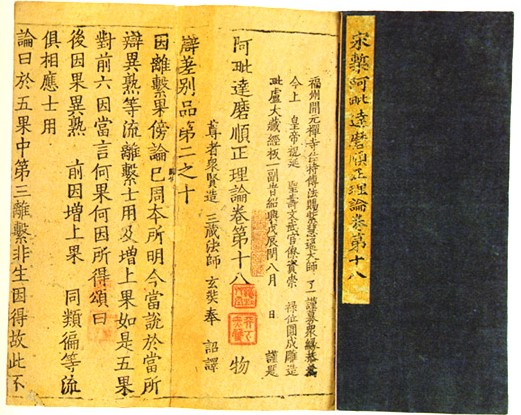 宋槧阿毗達磨順正理論卷第十八
福州開元禪寺住持傳法賜紫慧通大師 了一 謹募衆緣恭爲
今上 皇帝祝延 聖壽文武官僚資崇 祿位圓成雕造
毗盧大藏經板一副旹紹興戊辰閏八月 日 謹題
阿毗達磨順正理論卷第十八 物
尊者衆賢造 三藏法師 玄奘奉 詔譯
辯差別品第二之十
因離繫果傍論已周本所明今當說於當所
辯異熟等流離繫士用及增上果如是五果
對前六因當言何果何因所得頌曰
後因果異熟 前因增上果 同類徧等流
俱相應士用
論曰於五果中第三離繫非生因得故此不